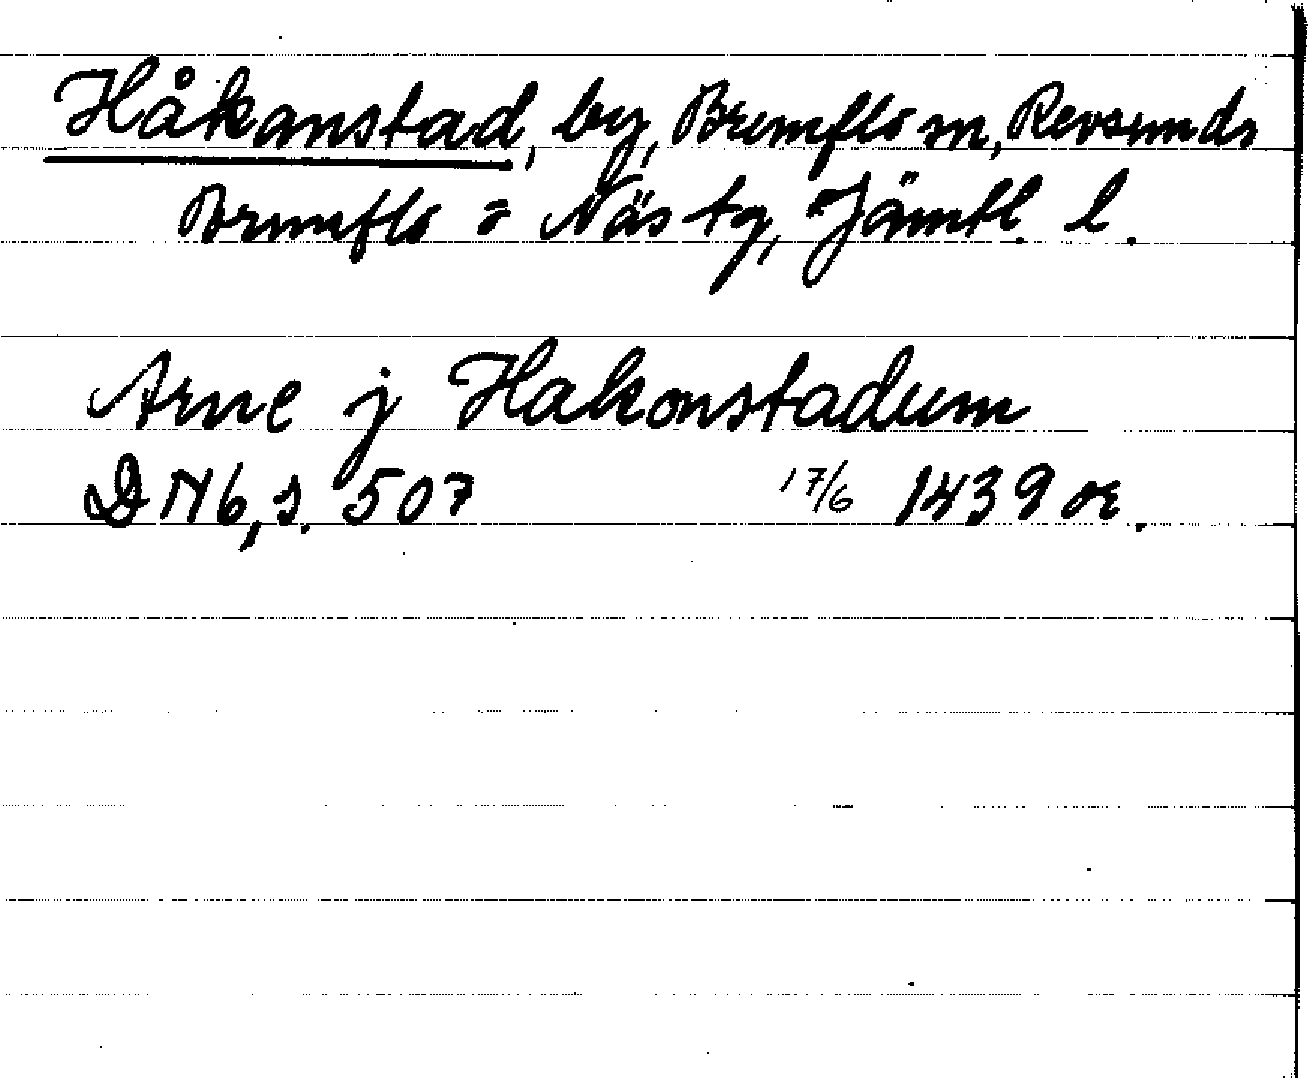 Håkanstad, by, Brunflo sn, Revsunds
Brunflo o Näs tg, Jämtl. l.
Arne j Hakonstadum
DN 6, s. 507 17/6 1439 or.